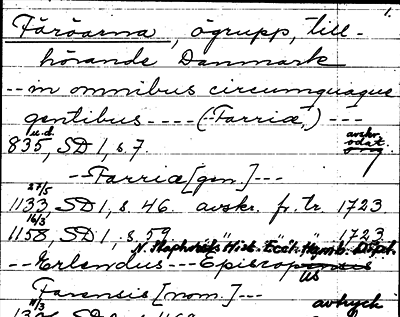 1.
Färöarna, ögrupp, till-
hörande Danmark
-- in omnibus circumquaque
gentibus ---- (Farriæ,) ---
u.d. avskr.
835, SD 1, s. 7. odat.
-- Farriæ [gen.] ---
27/5
1133, SD 1, s. 46. avskr. fr. tr. 1723.
16/3
1158, SD 1, s. 59. " " " 1723
N. Staphorsts Hist. Eccl. Hamb. Dipl.
-- Erlendus --- Episcopus
Farensis [nom.] ---
11/3 avtryck